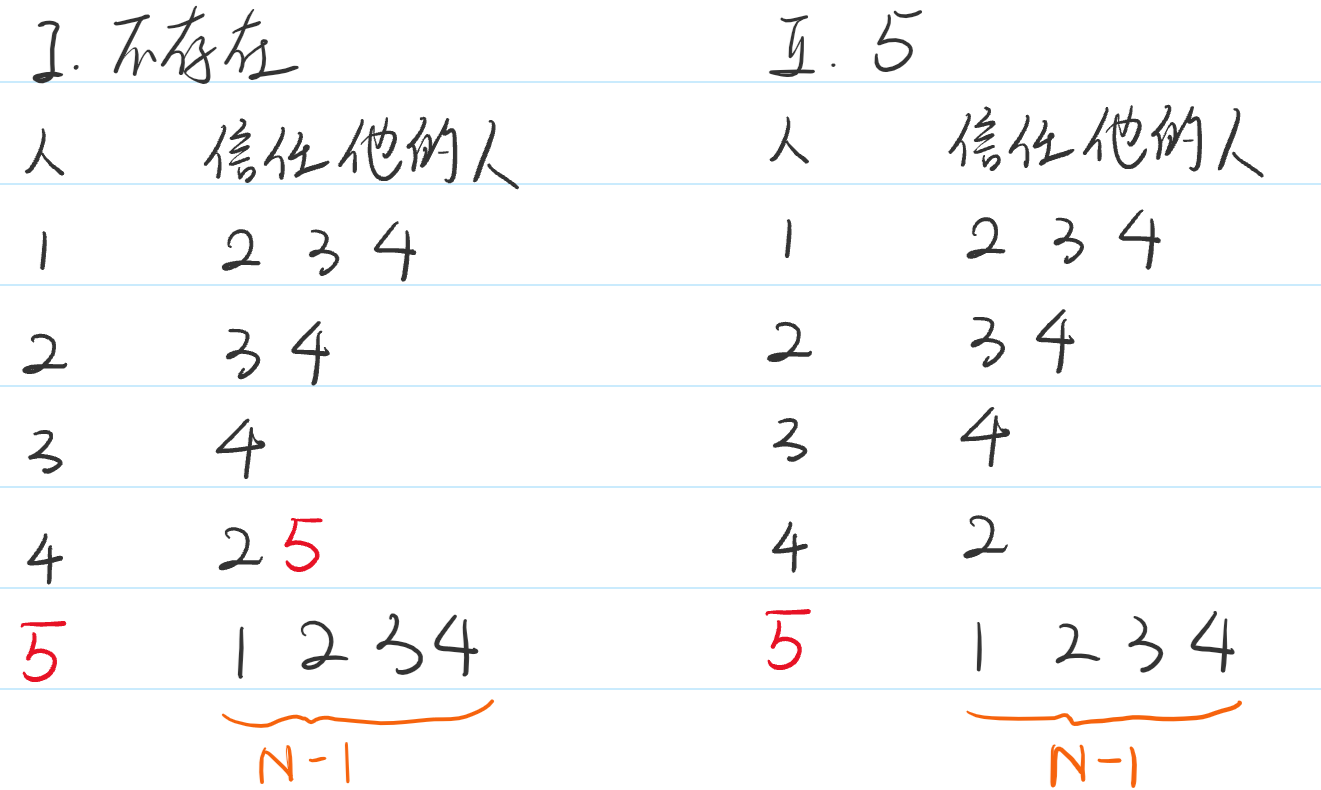 I. 不存在
人 信任他的人
1 2 3 4
2 3 4
3 4
4 2 5
5 1 2 3 4
N-1
II. 5
人 信任他的人
1 2 3 4
2 3 4
3 4
4 2
5 1 2 3 4
N-1